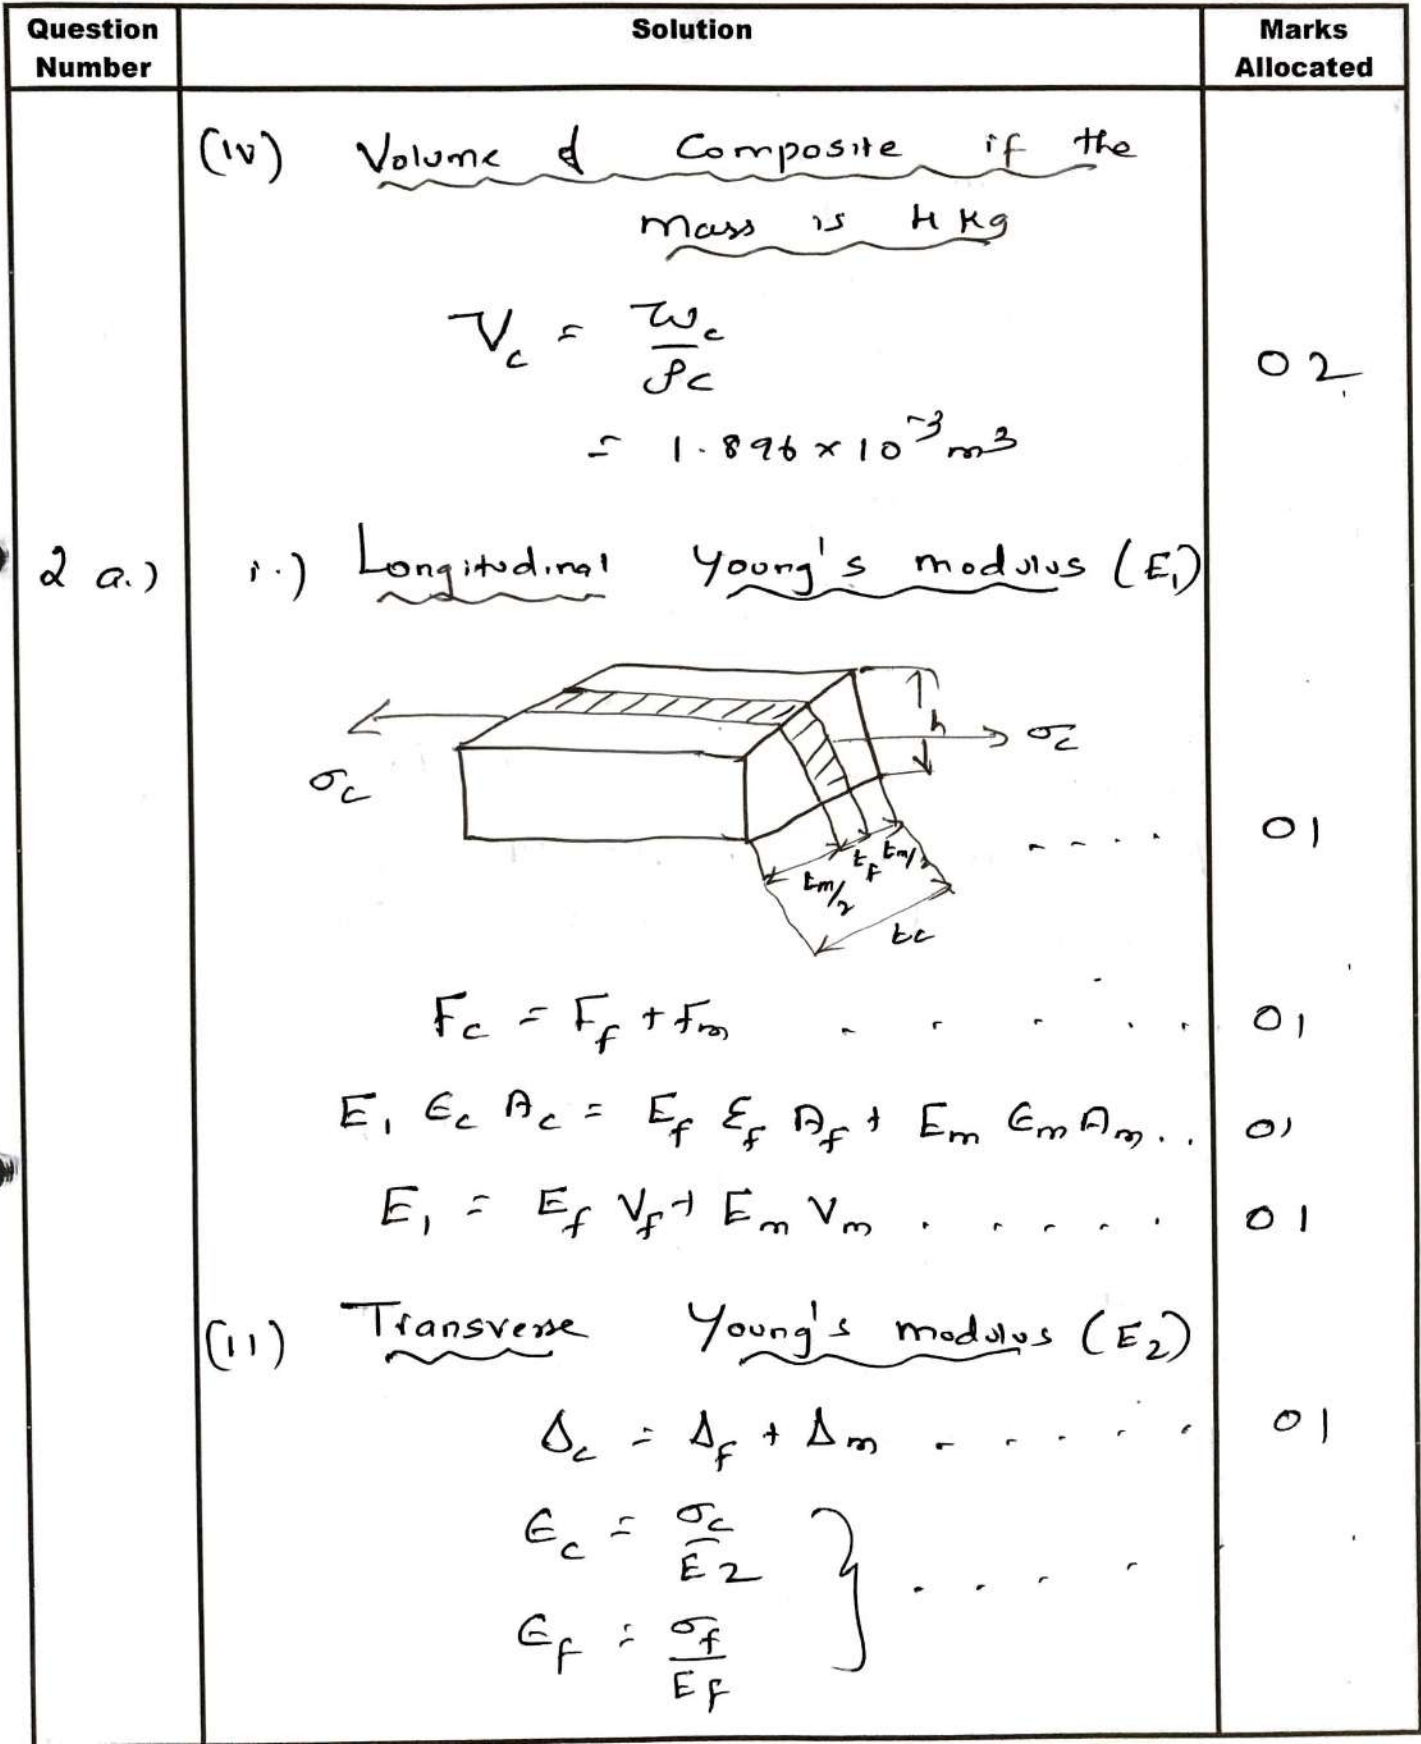 Question Number | Solution | Marks Allocated
(iv) Volume of Composite if the
mass is 4 kg
V_c = w_c / ρ_c
02
= 1.896 × 10^-3 m^3
2 a.) i.) Longitudinal Young's modulus (E_1)
h
σ_c
σ_c
t_m/2 t_f t_m/2 .... 01
t_c
F_c = F_f + F_m ..... 01
E_1 ε_c A_c = E_f ε_f A_f + E_m ε_m A_m .. 01
E_1 = E_f V_f + E_m V_m ..... 01
(ii) Transverse Young's modulus (E_2)
Δ_c = Δ_f + Δ_m ..... 01
ε_c = σ_c / E_2
} ....
ε_f = σ_f / E_f